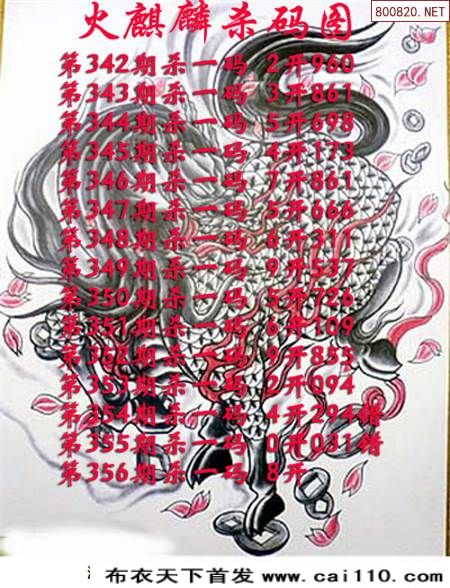 800820.NET
火麒麟杀码图
第342期杀一码 2开960
第343期杀一码 3开861
第344期杀一码 5开698
第345期杀一码 4开173
第346期杀一码 7开861
第347期杀一码 5开666
第348期杀一码 6开311
第349期杀一码 9开537
第350期杀一码 5开726
第351期杀一码 6开109
第352期杀一码 9开855
第351期杀一码 2开094
第354期杀一码 4开294错
第355期杀一码 0开031错
第356期杀一码 8开
布衣天下首发 www.cai110.com